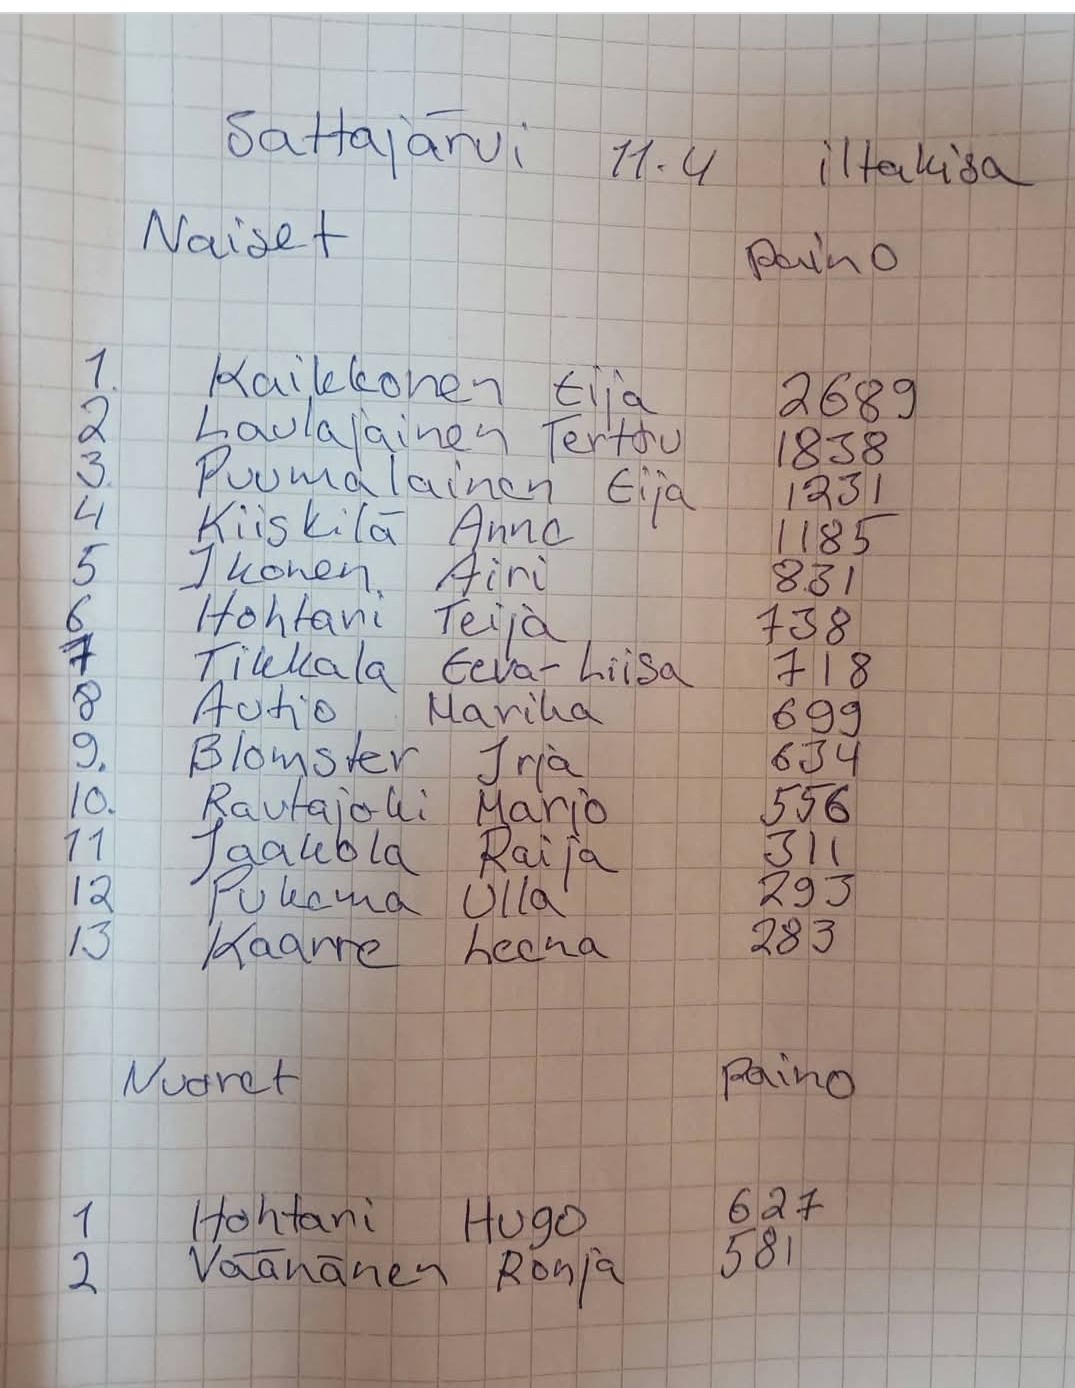 Sattajärvi 11.4 iltakisa
Naiset paino
1. Kaikkonen Eija 2689
2 Laulajainen Terttu 1838
3. Puumalainen Eija 1231
4 Kiiskilä Anne 1185
5 Ikonen Airi 831
6 Hohtani Teija 738
7 Tikkala Eeva-Liisa 718
8 Autio Marika 699
9. Blomster Irja 634
10. Rautajoki Marjo 556
11 Jaakola Raija 311
12 Pukema Ulla 293
13 Kaarre Leena 283
Nuoret paino
1 Hohtani Hugo 627
2 Väänänen Ronja 581